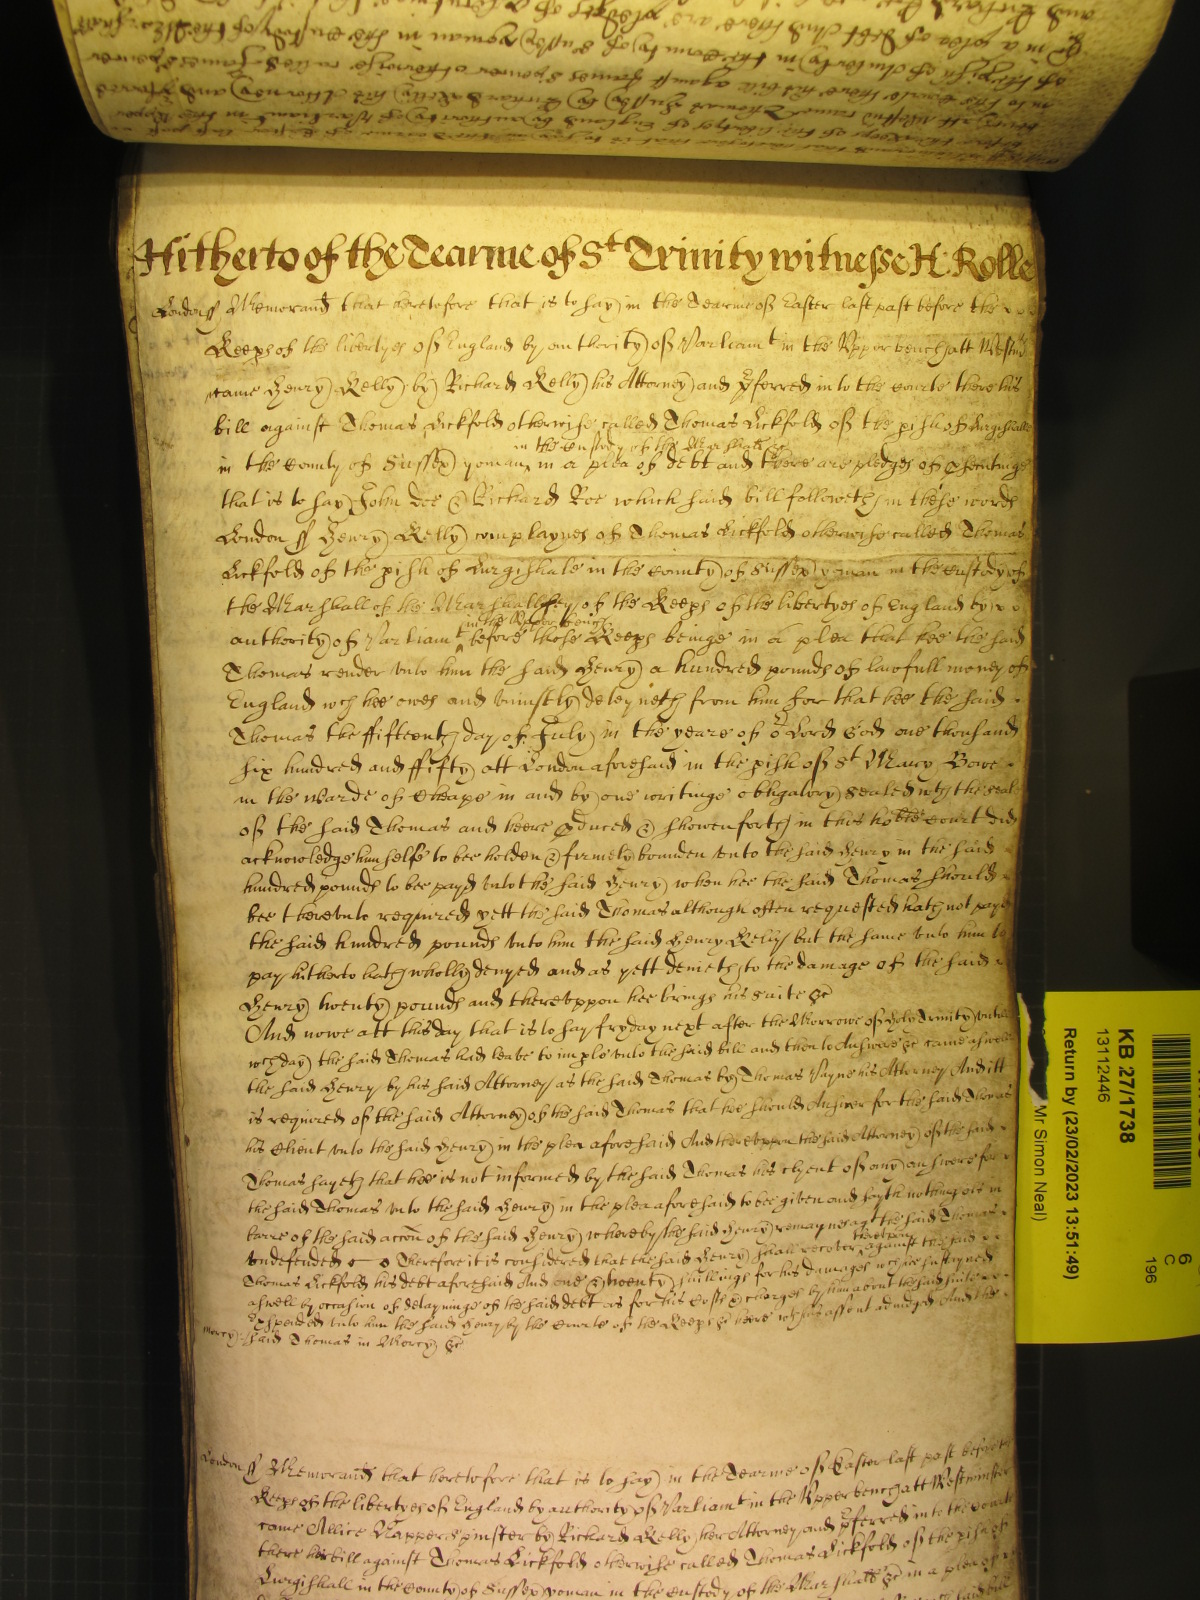 Hitherto of the Tearme of St Trinity witnesse H: Rolle
London ss Memorand that heretofore that is to say in the Tearme of Easter last past before the
Keeps of the libertyes of England by authority of Parliamt in the Upper bench att Westmr
came Henry Kelly by Richard Kelly his Attorney and pferred into the Courte there his
bill against Thomas Lickfold otherwise called Thomas Lickfold of the pish of Lurgishalle
in the custody of the Marshall &c
in the County of Sussex yoman in a plea of debt and there are pledges of psecutinge
that is to say John Doe & Richard Roe which said bill followeth in these words
London ss Henry Kelly complaynes of Thomas Lickfold otherwise called Thomas
Lickfold of the pish of Lurgishale in the County of Sussex yoman in the custody of
the Marshall of the Marshallsey of the Keeps of the libertyes of England by
in the Upper bench
authority of Parliamt before those Keeps beinge in a plea that hee the said
Thomas render unto him the said Henry a hundred pounds of lawfull money of
England wch hee owes and uniustly deteyneth from him For that hee the said
Thomas the fifteenth day of July in the yeare of or Lord God one thousand
six hundred and fifty att London aforesaid in the pish of St Mary Bowe
in the warde of Cheape in and by one writinge obligatory sealed wth the seale
of the said Thomas and heere pduced & shewen forth in this hoble Court did
acknowledge himselfe to bee holden & firmely bounden unto the said Henry in the said
hundred pounds to bee payd unto the said Henry when hee the said Thomas should
bee thereunto required yett the said Thomas although often requested hath not payd
the said hundred pounds unto him the said Henry Kelly but the same unto him to
pay hitherto hath wholly denyed and as yett denieth to the damage of the said
Henry twenty pounds and thereuppon hee brings his suite &c
And nowe att this day that is to say fryday next after the Morrowe of Holy Trinity untill
wch day the said Thomas had leave to imple unto the said bill and then to Answere &c came aswell
the said Henry by his said Attorney as the said Thomas by Thomas Payne his Attorney And itt
is required of the said Attorney of the said Thomas that hee should Answer for the said Thomas
his Client unto the said Henry in the plea aforesaid And thereuppon the said Attorney of the said
Thomas sayeth that hee is not informed by the said Thomas his clyent of any answere for
the said Thomas unto the said Henry in the plea aforesaid to bee given and sayth nothing els in
barre of the said accon of the said Henry whereby the said Henry remaynes agt the said Thomas
thereupon
undefended Therefore it is considered that the said Henry shall recover against the said
Thomas Lickfold his debt aforesaid And one & twenty shillings for his damages wch hee susteyned
aswell by occasion of delayninge of the said debt as for his costs & charges by him about the said suite
Expended unto him the said Henry by the Courte of the Keeps &c heere wth his assent adiudged And the
mercy said Thomas in Mercy &c
London ss Memorand that heretofore that is to say in the Tearme of Easter last past before the
Keeps of the libertyes of England by authority of Parliamt in the Upper bench att Westminster
came Allice Napper spinster by Richard Kelly her Attorney and pferred into the Courte
there her bill against Thomas Lickfold otherwise called Thomas Lickfold of the pish of
Lurgishall in the County of Sussex yoman in the custody of the Marshall &c in a plea of
KB 27/1738
13112446
Return by (23/02/2023 13:51:49)
Mr Simon Neal)
6
C
196